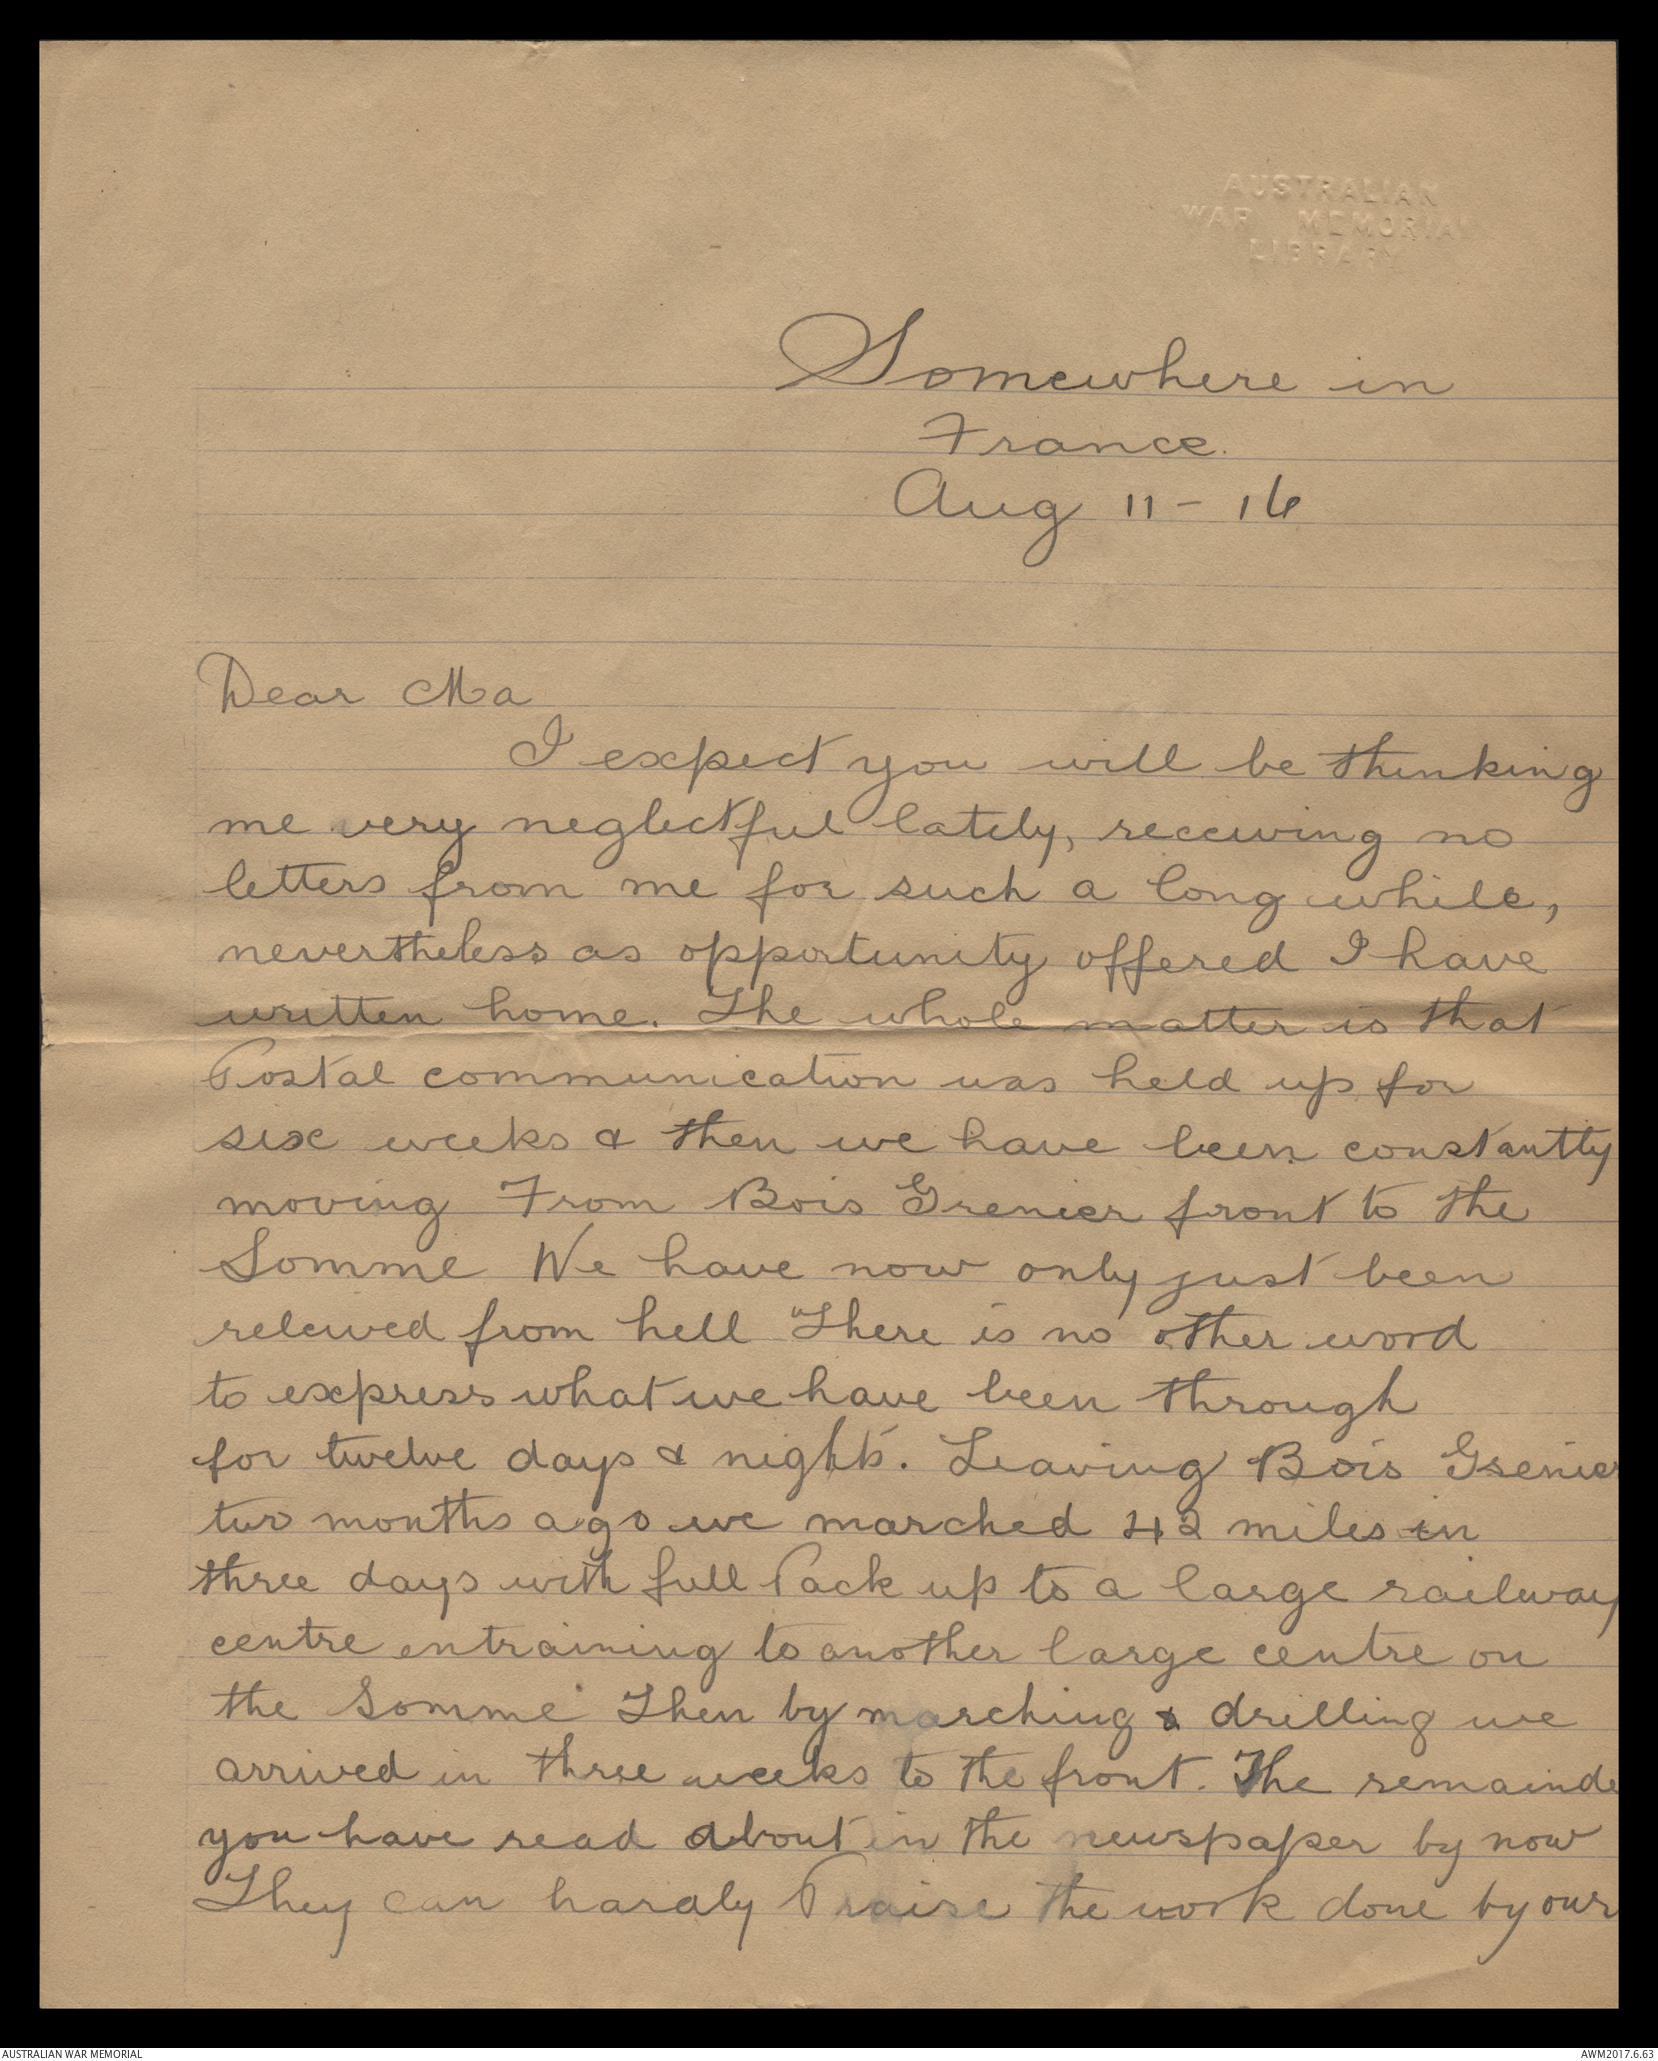 AUSTRALIAN
WAR MEMORIAL
LIBRARY
Somewhere in
France.
Aug 11 - 16
Dear Ma
I expect you will be thinking
me very neglectful lately, receiving no
letters from me for such a long while,
nevertheless as opportunity offered I have
written home. The whole matter is that
Postal communication was held up for
six weeks & then we have been constantly
moving From Bois Grenier front to the
Somme We have now only just been
releived from hell "There is no other word
to express what we have been through
for twelve days & nights. Leaving Bois Grenier
two months ago we marched 42 miles in
three days with full Pack up to a large railway
centre entraining to another large centre on
the Somme Then by marching & drilling we
arrived in three weeks to the front. The remainde
you have read about in the newspaper by now
They can hardly Praise the work done by our
AUSTRALIAN WAR MEMORIAL
AWM2017.6.63